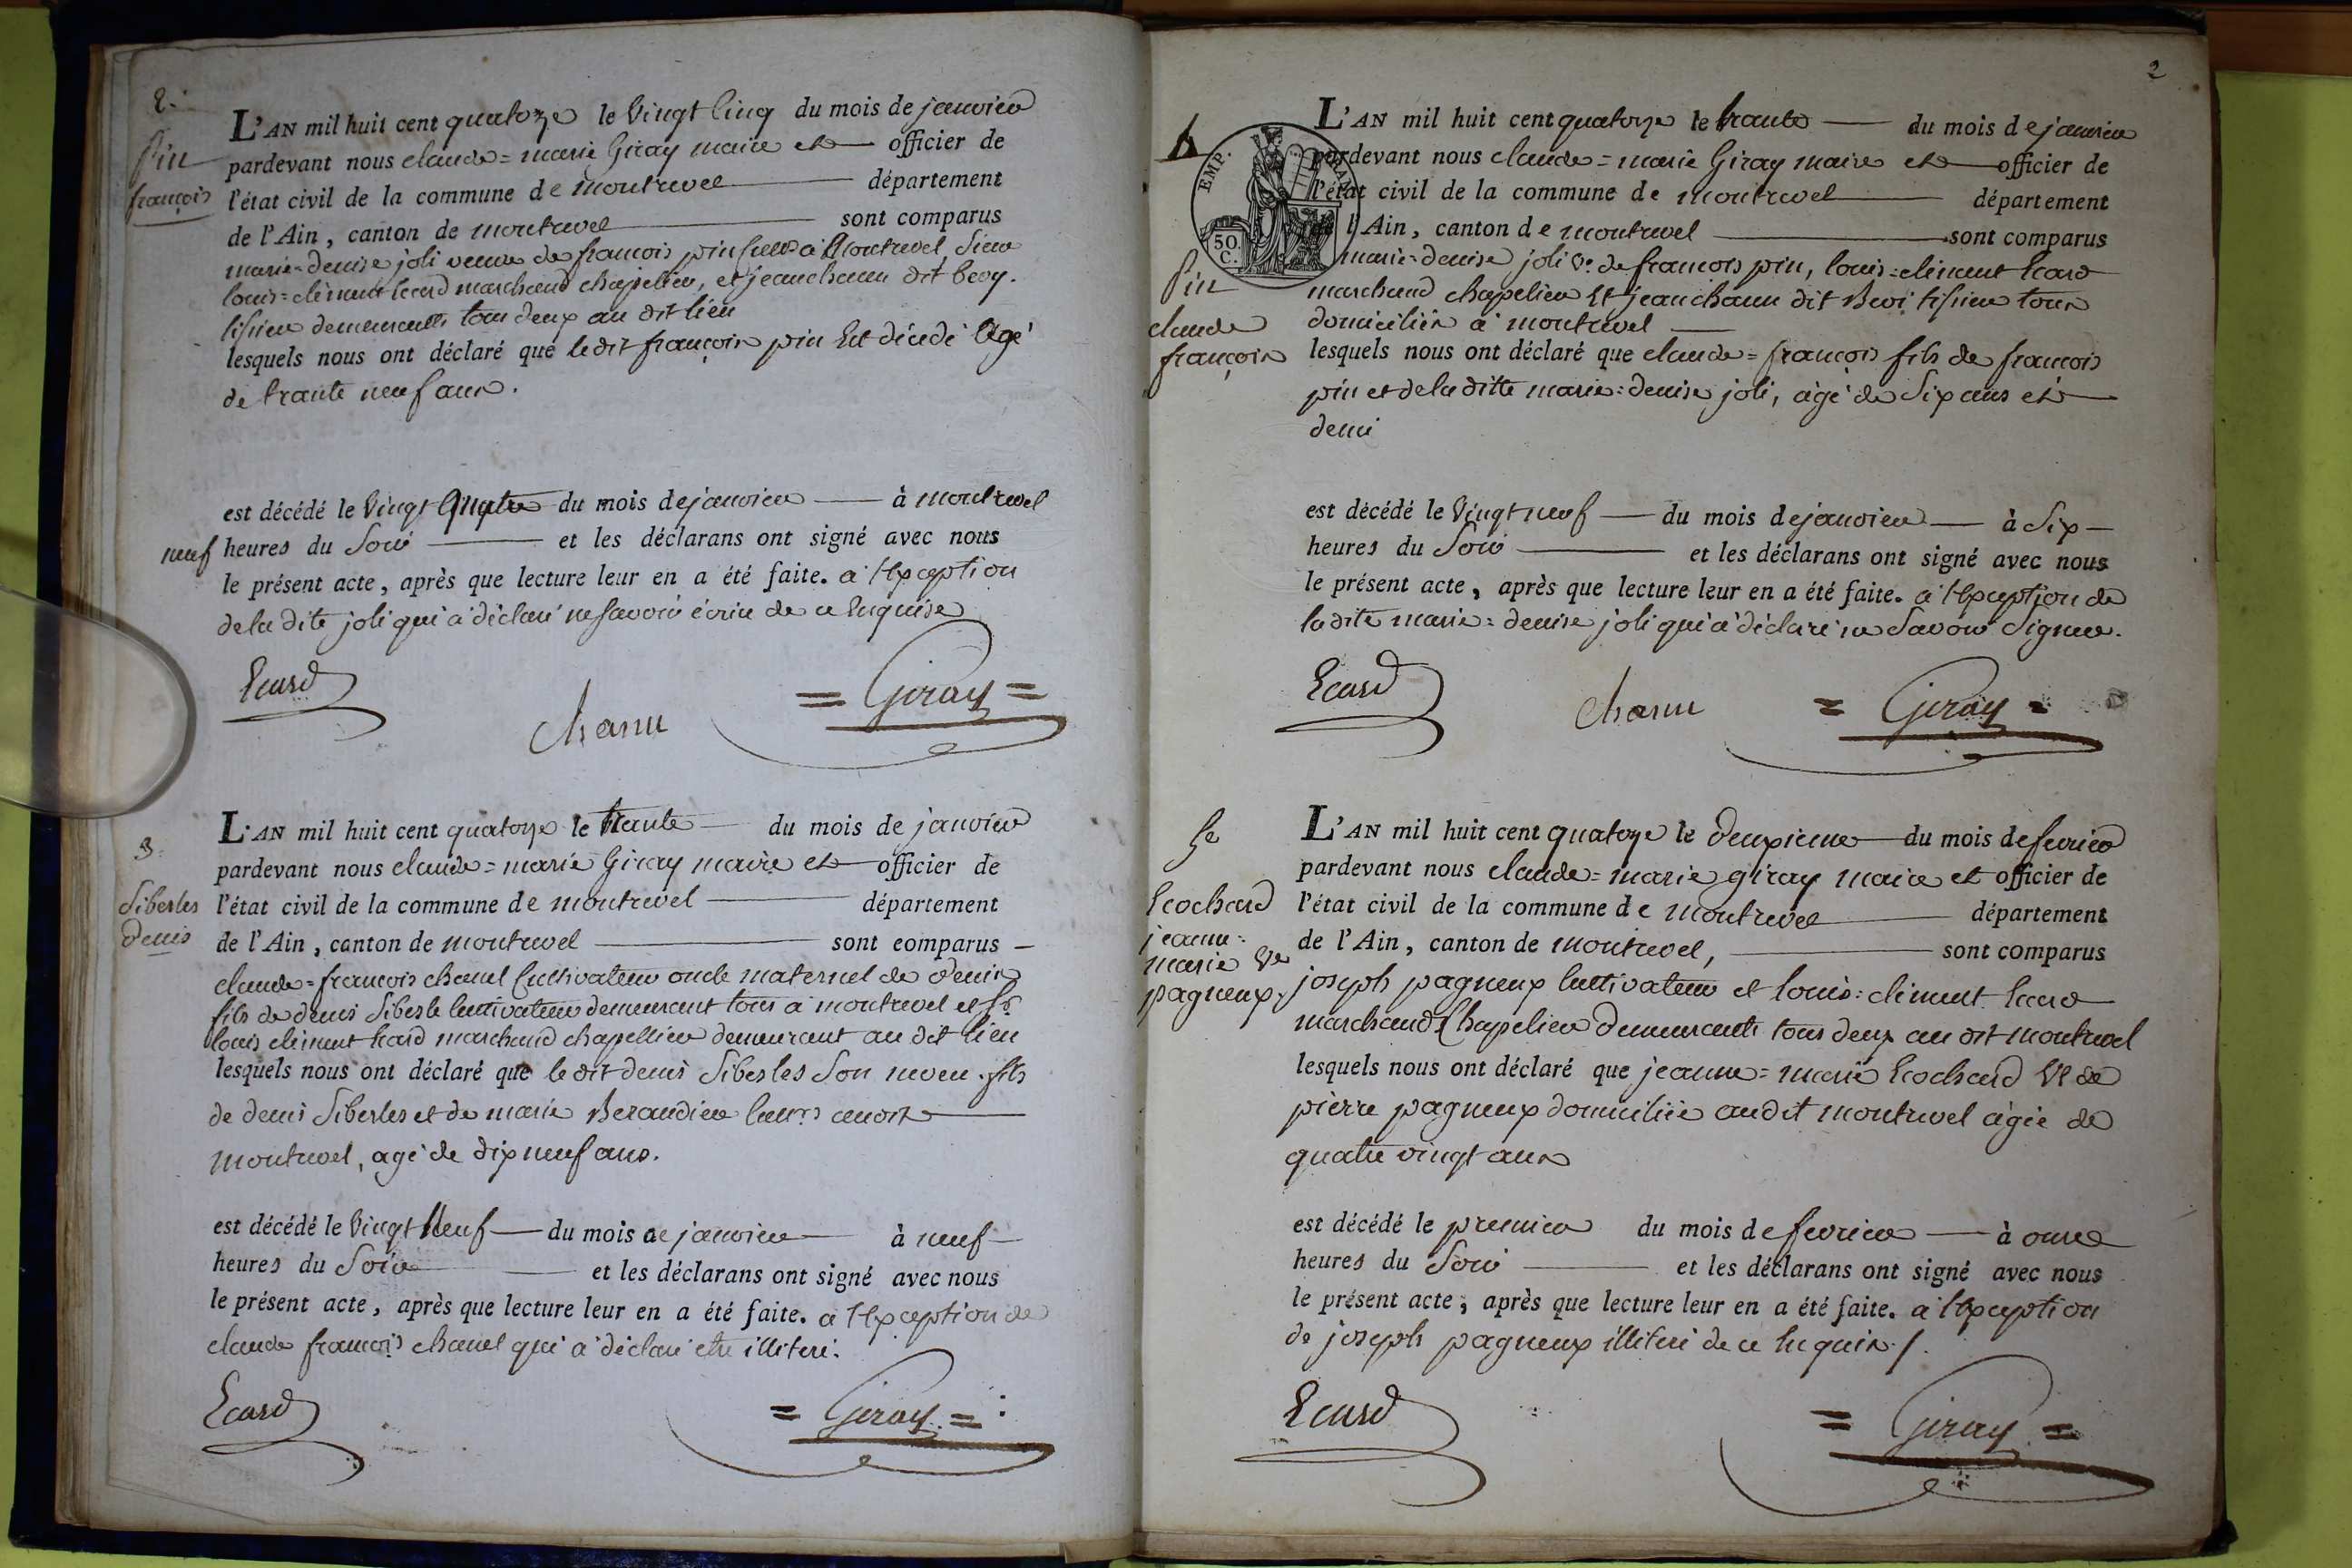 2.
Pin
françois
L'AN mil huit cent quatorze le vingt cinq du mois de janvier
pardevant nous claude=marie Giray maire et officier de
l'état civil de la commune de montrevel département
de l'Ain, canton de montrevel sont comparus
marie=denise joli veuve de françois pin à Montrevel, Sieur
louis=clément Ecard marchand chapelier, et jean chanu dit
tisieur demeurants tous deux au dit lieu
lesquels nous ont déclaré que le dit françois pin Est décédé âgé
de trante neuf ans.
est décédé le vingt quatre du mois de janvier à montrevel
neuf heures du Soir et les déclarans ont signé avec nous
le présent acte, après que lecture leur en a été faite. à l'Exception
de la dite joli qui a déclaré ne savoir écrire de ce Enquise
Ecard
chanu
= Giray =
3.
Siberles
Denis
L'AN mil huit cent quatorze le trante du mois de janvier
pardevant nous claude=marie Giray maire et officier de
l'état civil de la commune de montrevel département
de l'Ain, canton de montrevel sont comparus
claude=françois chanel Cultivateur oncle maternel de denis
fils de denis Siberle cultivateur demeurant tous à montrevel et Sr
louis clément Ecard marchand chapellier demeurant au dit lieu
lesquels nous ont déclaré que le dit denis Siberles Son neveu. fils
de denis Siberles et de marie Berandier
montrevel, agé de dix neuf ans.
est décédé le vingt Neuf du mois de janvier à neuf
heures du Soir et les déclarans ont signé avec nous
le présent acte, après que lecture leur en a été faite. à l'Exception de
claude françois chanel qui a déclaré etre illiteré.
Ecard
= Giray =
2
4
EMP.
50.
C.
Pin
claude
françois
L'AN mil huit cent quatorze le trante du mois de janvier
pardevant nous claude=marie Giray maire et officier de
l'état civil de la commune de montrevel département
de l'Ain, canton de montrevel sont comparus
marie=denise joli Ve. de françois pin, louis=clément Ecard
marchand chapelier Et jean chanu dit Bevi tisieur tous
domiciliés à montrevel
lesquels nous ont déclaré que claude=françois fils de françois
pin et de la ditte marie=denise joli, âgé de Six ans et
demi
est décédé le vingt neuf du mois de janvier à Six
heures du Soir et les déclarans ont signé avec nous
le présent acte, après que lecture leur en a été faite. à l'Exception de
la dite marie=denise joli qui a déclaré ne Savoir Signer.
Ecard
chanu
= Giray =
5e
Ecochard
jeanne=
marie Ve
pagneux.
L'AN mil huit cent quatorze le deuxieme du mois de fevrier
pardevant nous claude=marie giray maire et officier de
l'état civil de la commune de montrevel département
de l'Ain, canton de montrevel, sont comparus
joseph pagneux cultivateur et louis=clément Ecard
marchand Chapelier Demeurants tous deux au dit montrevel
lesquels nous ont déclaré que jeanne=marie Ecochard Ve de
pierre pagneux domiciliée audit montrevel âgée de
quatre vingt ans
est décédé le premier du mois de fevrier à onze
heures du Soir et les déclarans ont signé avec nous
le présent acte, après que lecture leur en a été faite. à l'Exception
de joseph pagneux illiteré de ce Enquis./.
Ecard
= Giray =